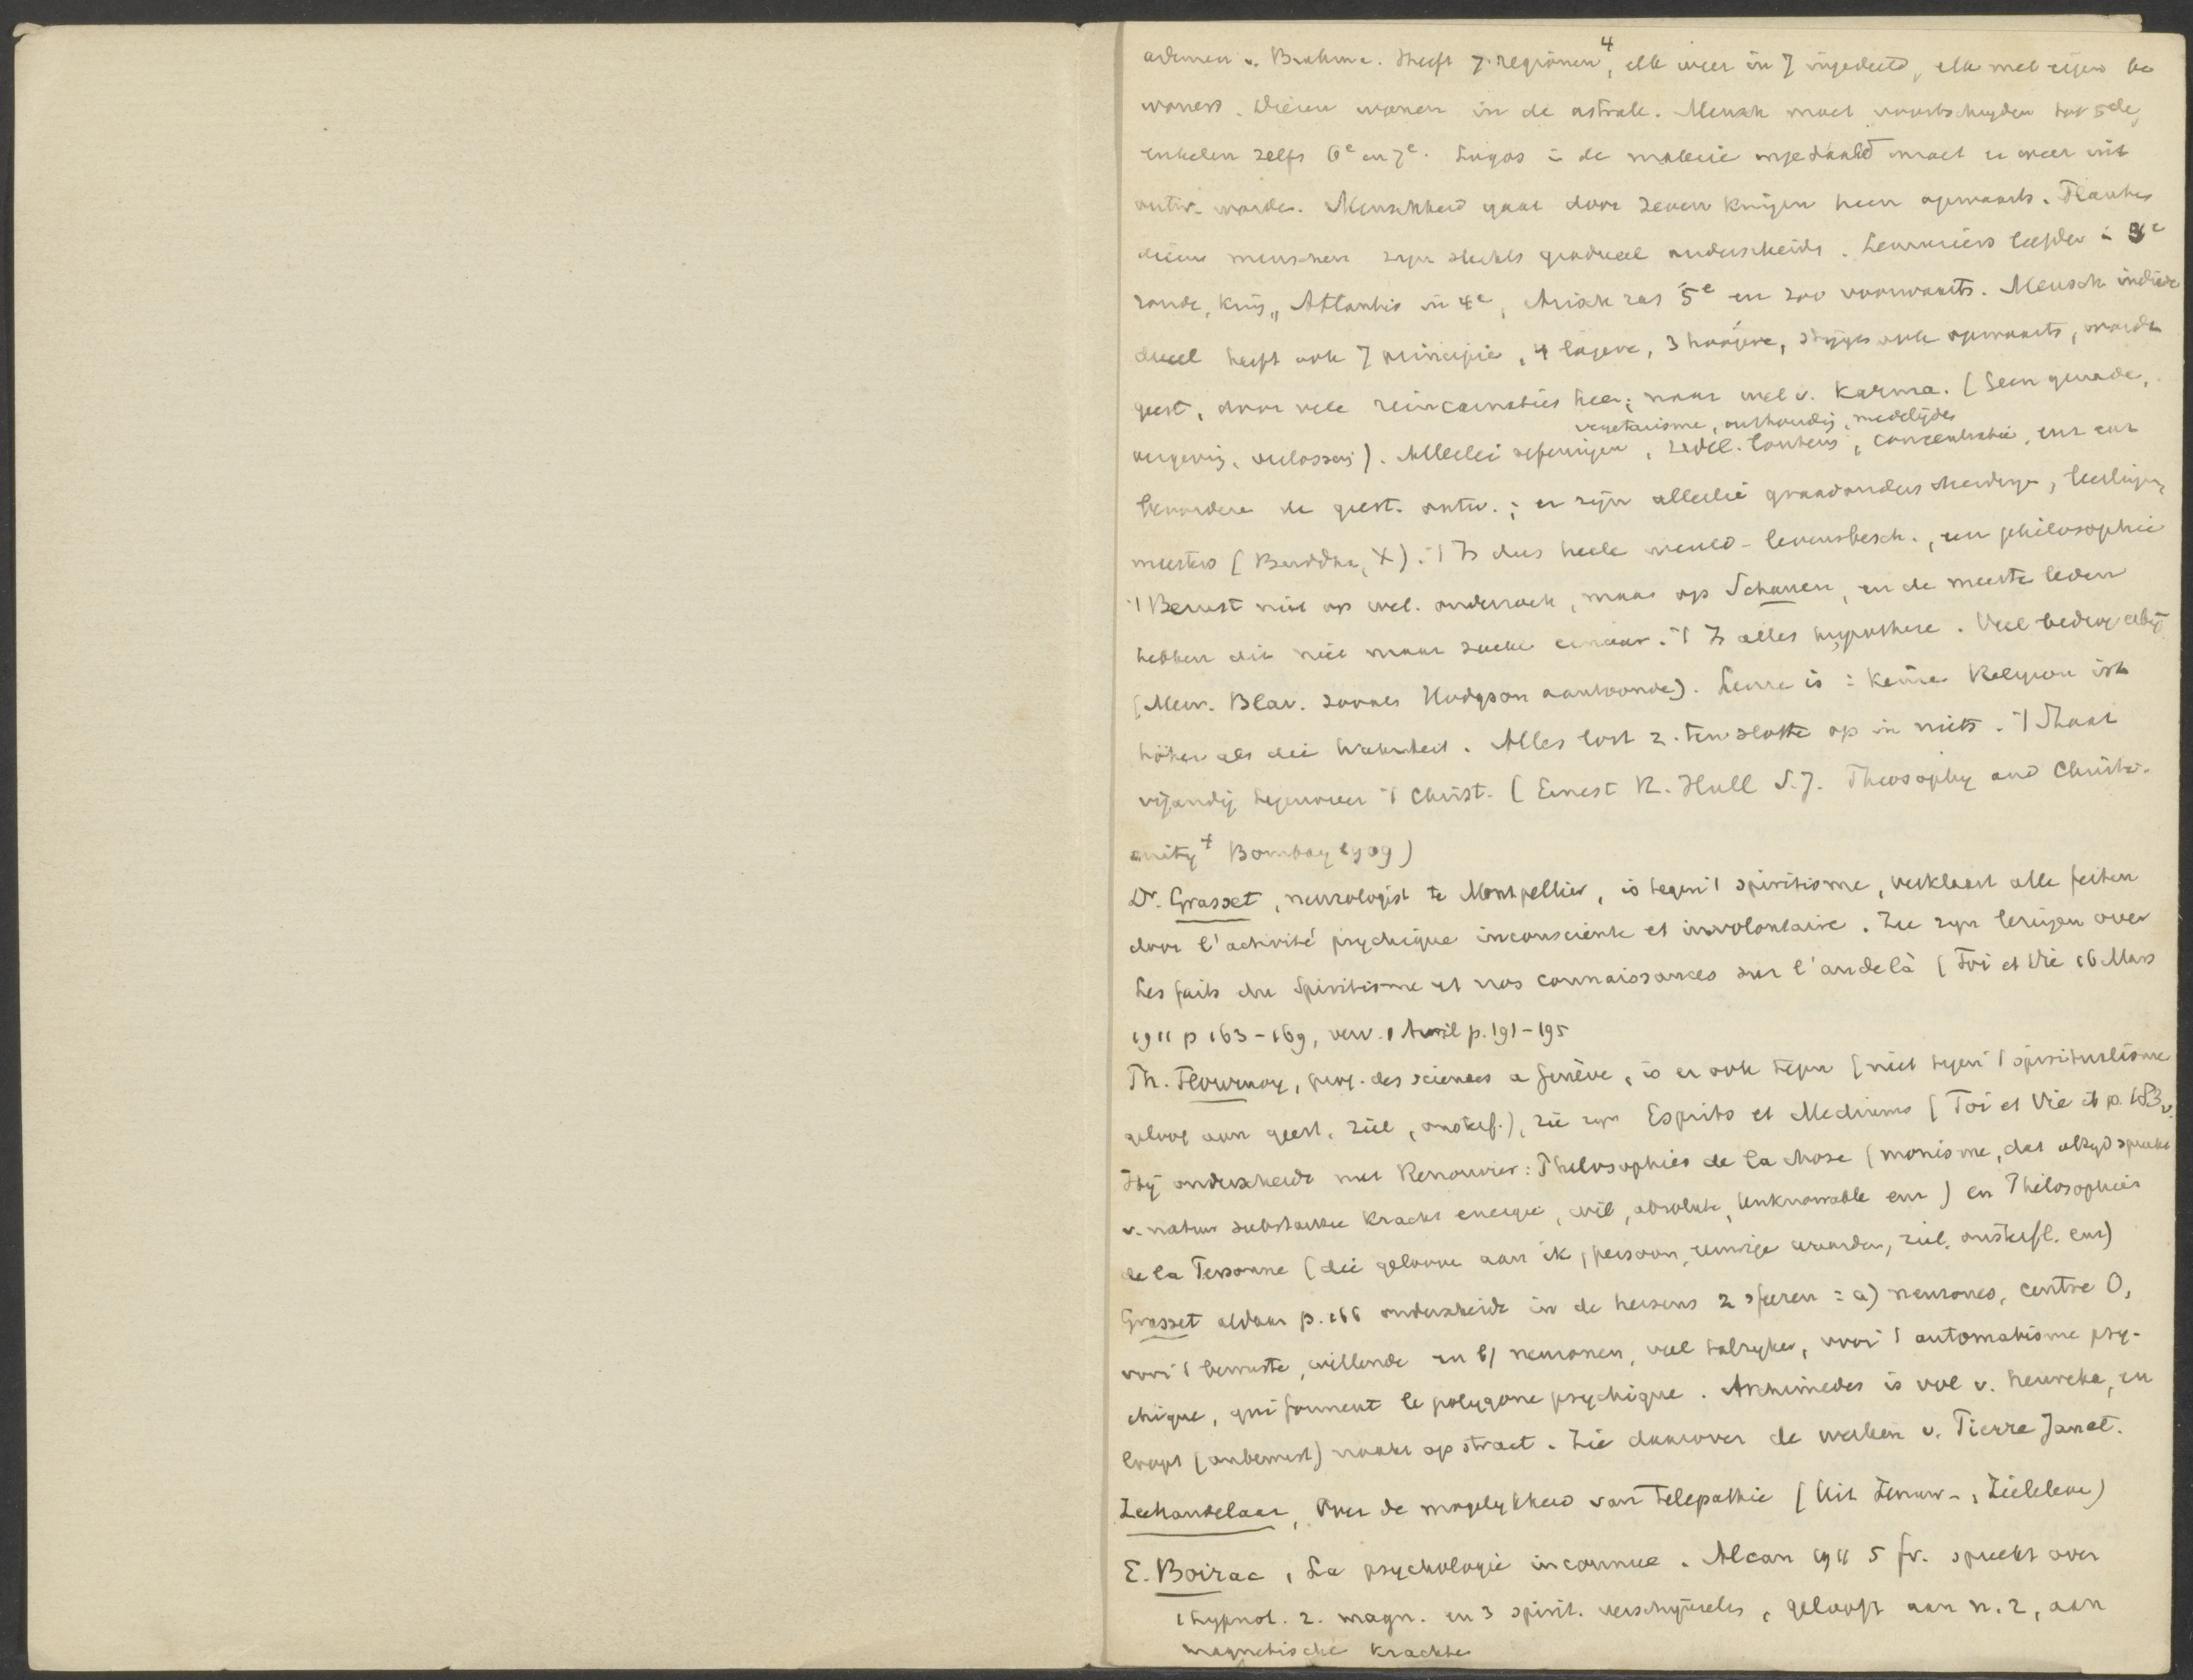 ademen v. Brahma. Heeft 7 regionen⁴, elk weer in 7 ingedeeld, elk met eigen be
woners. Wij wonen in de astrale. Mensch moet voortschrijden tot 5de,
enkelen zelfs 6e en 7e. Logos in de materie ingedaald moet er weer uit
ontw. worden. Menschheid gaat door zeven kringen heen opwaarts. Planten
dieren menschen zijn slechts gradueel onderscheiden. Lemuriërs leefden in 3e
ronde, kring, Atlantis in 4e, Arisch ras 5e en zoo voorwaarts. Mensch indivi
dueel heeft ook 7 principia, 4 lagere, 3 hoogere, stijgt ook opwaarts, wordt
geest, door vele reincarnaties heen; naar wet v. Karma. (Geen genade,
vegetarisme, onthouding, medelijden
vergeving, verlossing). Allerlei oefeningen, zedel. , concentratie, enz enz
bevorderen de geest. ontw.; er zijn allerlei graadonderscheidingen, leerlingen,
meesters (Buddha, X). 't Is dus heele wereld-levensbesch., een philosophie
't Berust niet op wet. onderzoek, maar op Schauen, en de meeste leden
hebben dit niet maar zoeken ernaar. 't Is alles hypothese. Veel bedrog erbij
(Mevr. Blav. zooals Hodgson aantoonde). Leuze is: Keine Religion ist
höher als die Wahrheit. Alles lost z. ten slotte op in niets. 't Staat
vijandig tegenover 't Christ. (Ernest R. Hull S.J. Theosophy and Christi-
anity⁴ Bombay 1909)
Dr. Grasset, neurologist te Montpellier, is tegen 't spiritisme, verklaart alle feiten
door l'activité psychique inconsciente et involontaire. Zie zijn lezingen over
Les faits du Spiritisme et nos connaissances sur l'audelà (Foi et Vie 16 Mars
1911 p 163-169, verv. 1 Avril p. 191-195
Th. Flournoy, prof. des sciences a Genève, is er ook tegen (niet tegen 't spiritualisme
geloof aan geest, ziel, onsterf.), zie zijn Esprits et Mediums (Foi et Vie ib p. 183v.
Hij onderscheidt met Renouvier: Philosophies de la chose (monisme, dat altijd spreekt
v. natuur substantie kracht energie, wil, absolute, Unknowable enz) en Philosophies
de la Personne (die gelooven aan ik, persoon, eeuwige waarden, ziel, onsterfl. enz)
Grasset aldaar p. 166 onderscheidt in de hersens 2 sferen: a) neurones, centre O,
voor 't bewuste, willende en b) neuronen, veel talrijker, voor 't automatisme psy-
chique, qui forment le polygone psychique. Archimedes is vol v. heureka, en
loopt (onbewust) naakt op straat. Zie daarover de werken v. Pierre Janet.
Zeehandelaar, Over de mogelijkheid van telepathie (Uit Zenuw- , Zieleleven)
E. Boirac, La psychologie inconnue. Alcan 1911 5 fr. spreekt over
1 hypnot. 2. magn. en 3 spirit. verschijnselen, gelooft aan n. 2, aan
magnetische krachten